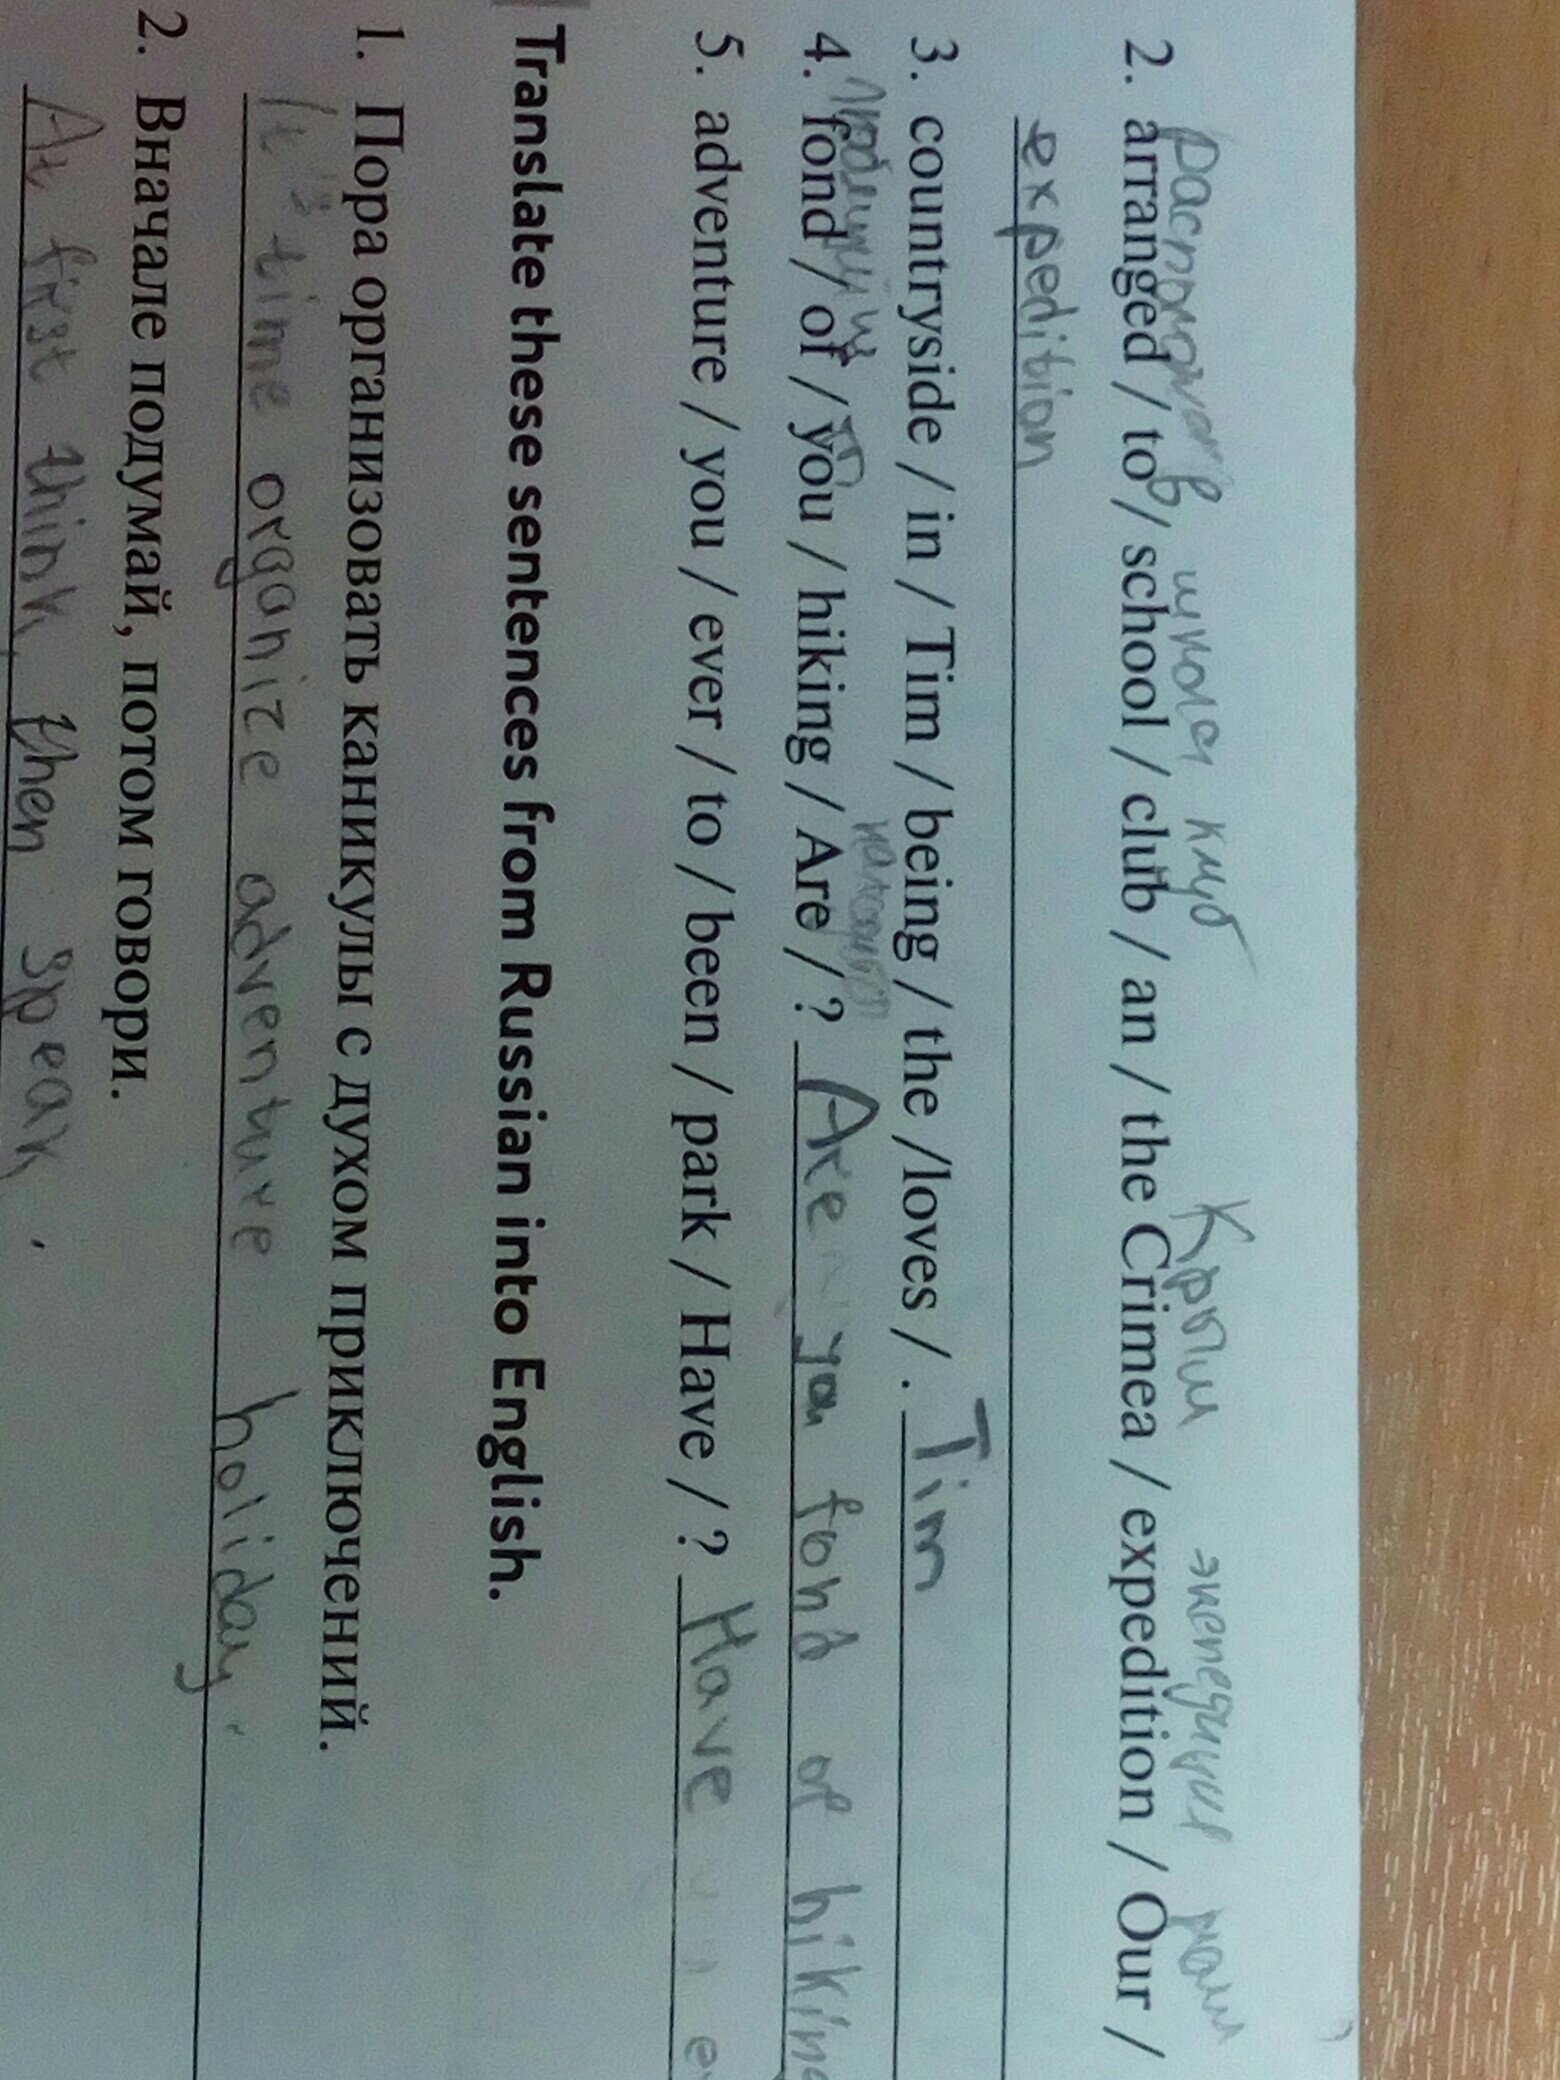 в школа клуб Крым
2. arranged / to / school / club / an / the Crimea / expedition / Our /
expedition
3. countryside / in / Tim / being / the /loves / . Tim
4. fond / of / you / hiking / Are / ? Are you fond of hiking
5. adventure / you / ever / to / been / park / Have / ? Have
Translate these sentences from Russian into English.
1. Пора организовать каникулы с духом приключений.
It's time organize adventure holiday.
2. Вначале подумай, потом говори.
At first think, then speak.